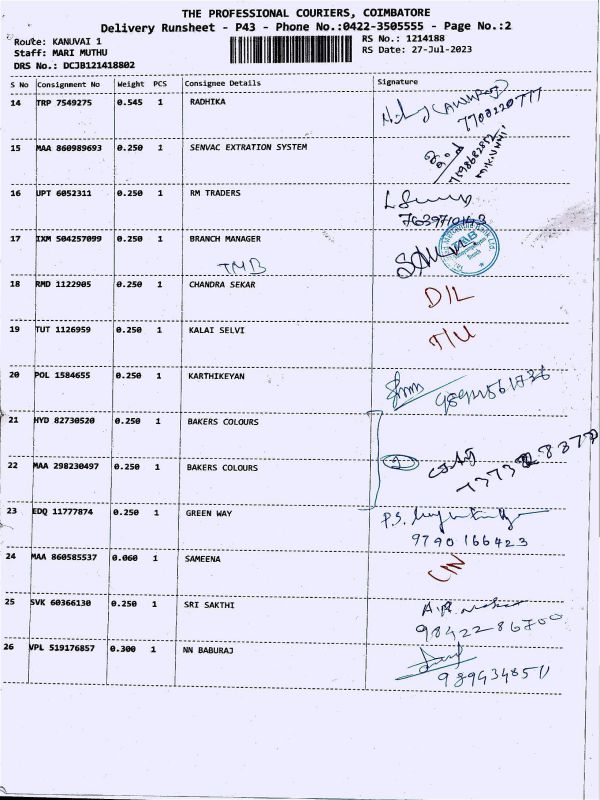 THE PROFESSIONAL COURIERS, COIMBATORE
Delivery Runsheet - P43 - Phone No.:0422-3505555 - Page No.:2
Route: KANUVAI 1
RS No.: 1214188
Staff: MARI MUTHU
RS Date: 27-Jul-2023
DRS No.: DCJB121418802
S No Consignment No Weight PCS Consignee Details Signature
14 TRP 7549275 0.545 1 RADHIKA
7708220777
15 MAA 860989693 0.250 1 SENVAC EXTRATION SYSTEM
16 UPT 6052311 0.250 1 RM TRADERS
7639710143
17 IXM 504257099 0.250 1 BRANCH MANAGER
TMB
18 RMD 1122905 0.250 1 CHANDRA SEKAR D/L
19 TUT 1126959 0.250 1 KALAI SELVI T/U
20 POL 1584655 0.250 1 KARTHIKEYAN
21 HYD 82730520 0.250 1 BAKERS COLOURS
22 MAA 298230497 0.250 1 BAKERS COLOURS
23 EDQ 11777874 0.250 1 GREEN WAY P.S.
9790166423
24 MAA 860585537 0.060 1 SAMEENA C/N
25 SVK 60366130 0.250 1 SRI SAKTHI
9842286700
26 VPL 519176857 0.300 1 NN BABURAJ